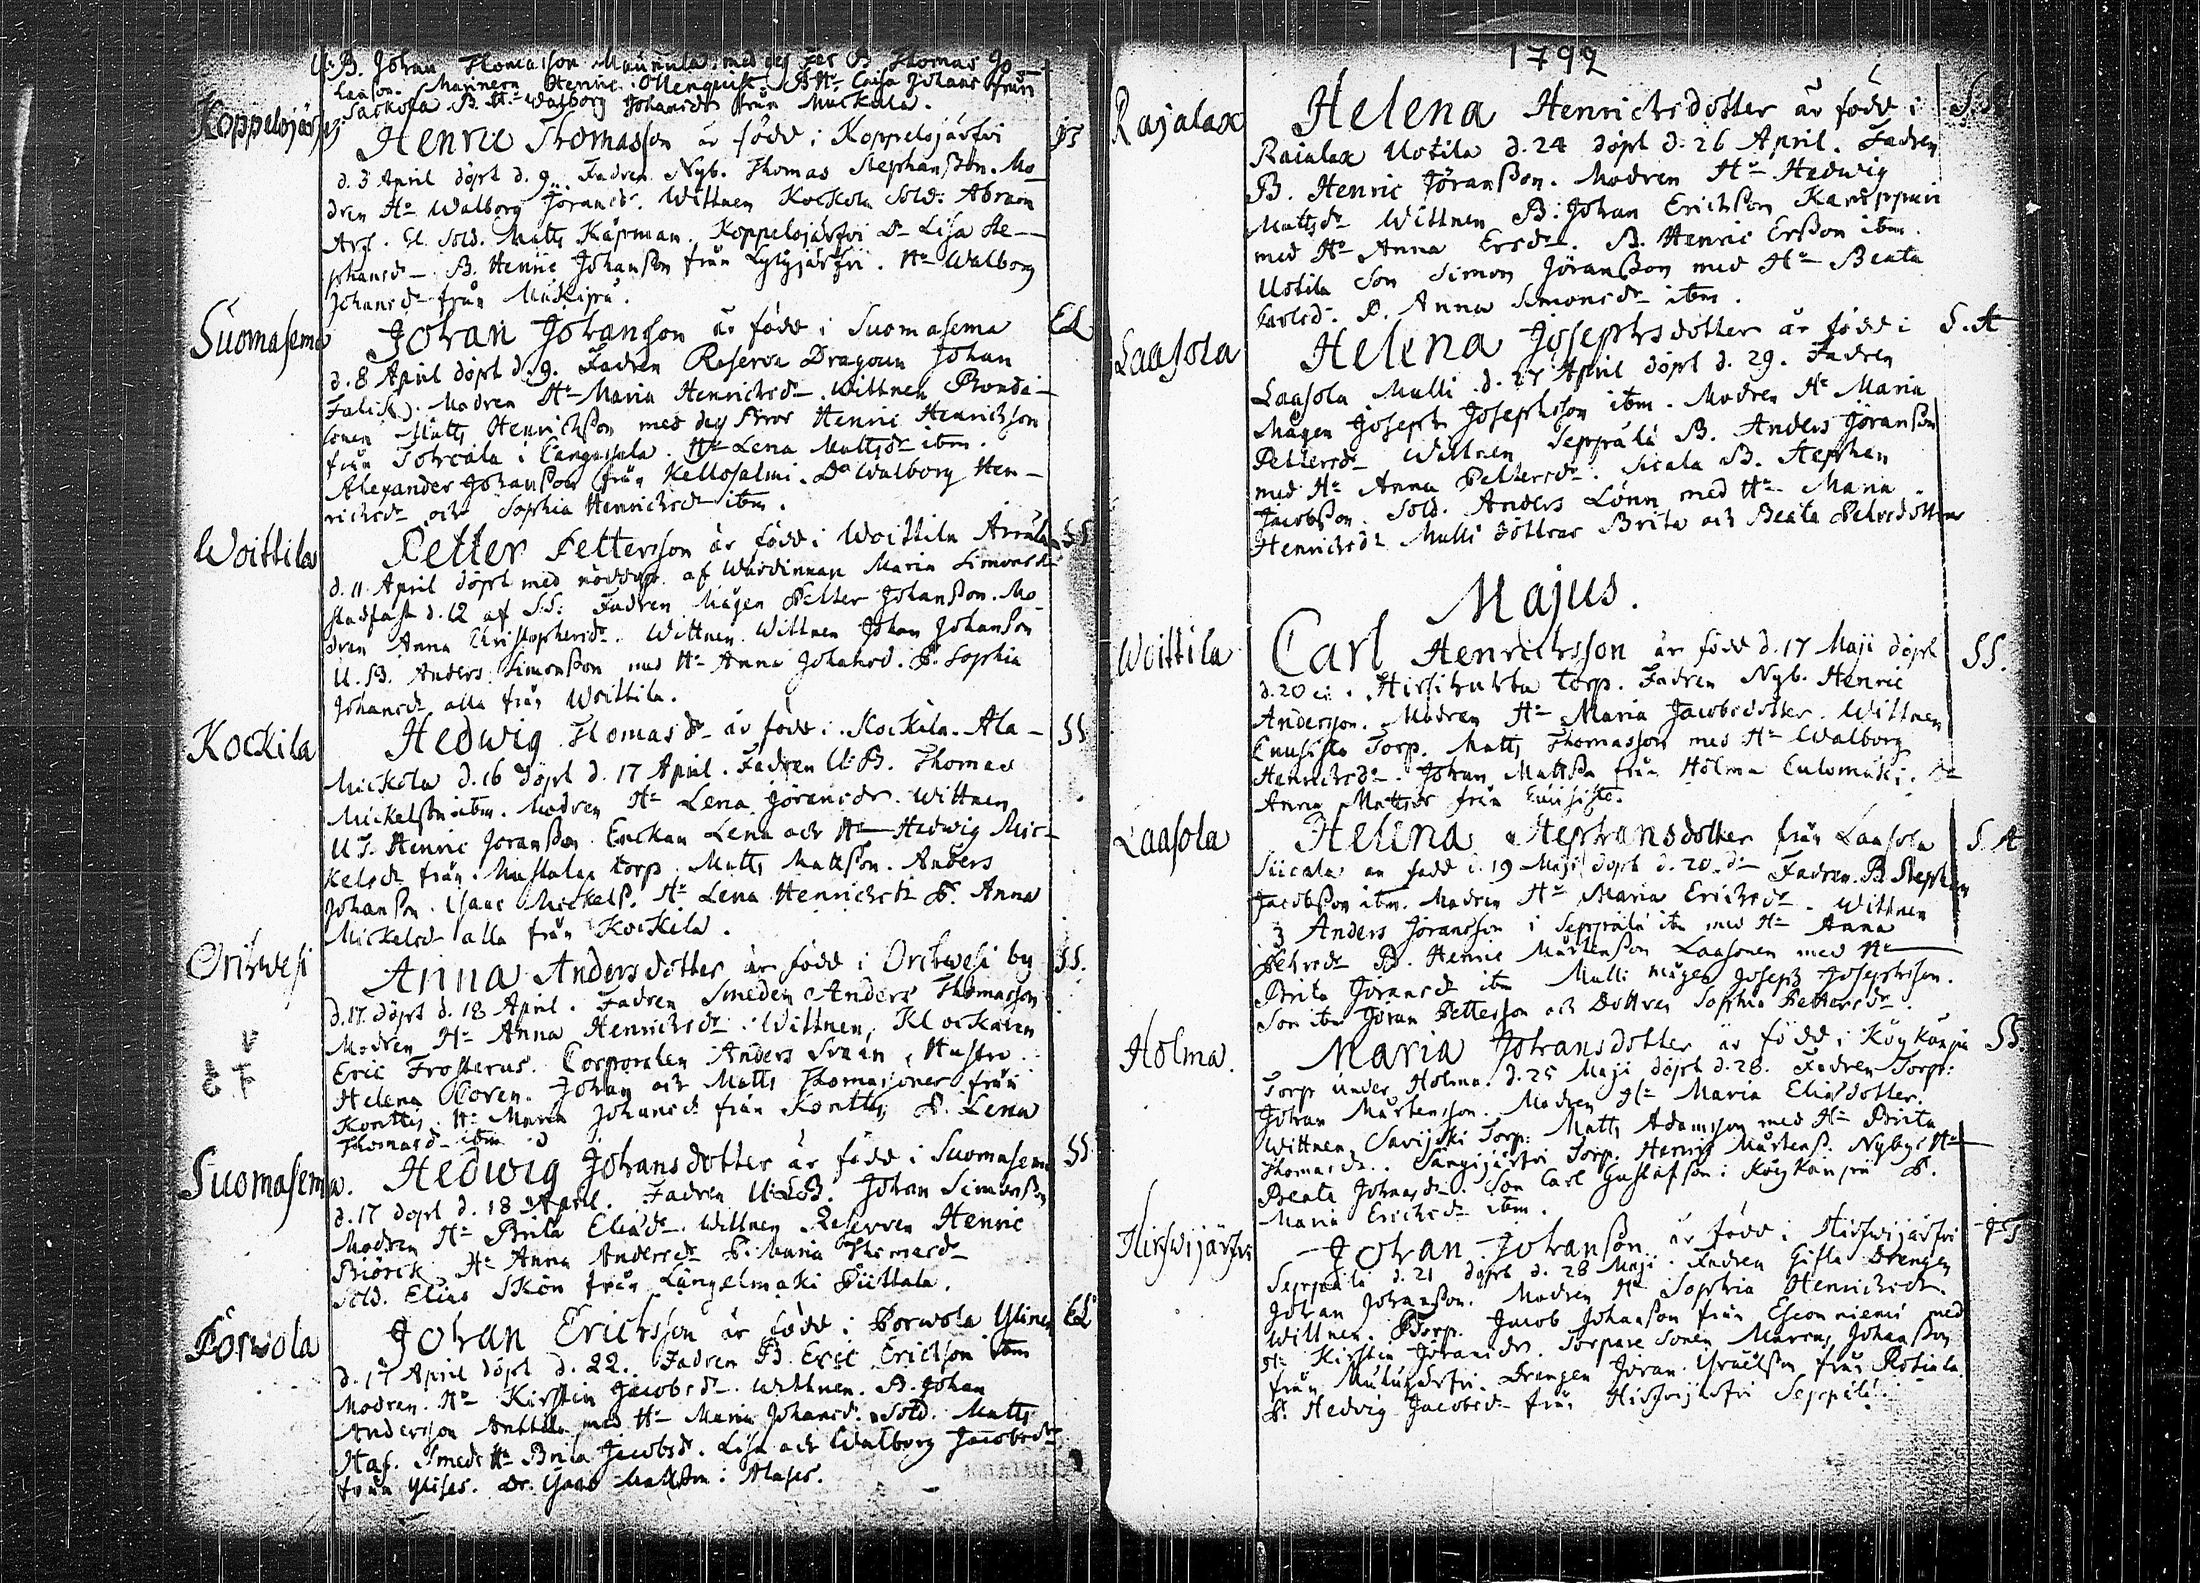 U.B. Johan Thomasson Maunula med des Far B. Thomas Jo
hansson. Mannern Henric Ollenquist. B. Hr Caisa Johans från
Sackola B. Hu Walborg Johansdr från Muckula.
Koppelojärfvi Henric Thomasson är född i Koppelojärfvi JS
d. 3 April döpt d. 9. Fadren Nyb. Thomas Stephanßon. Mo
dren Hu Walborg Jöransdr. Wittnen Kockola Sold. Abram
Arf. El. Sold. Matts Kärman. Koppelojärfvi Dr Lisa Ste
phansdr B. Henric Johanßon från Lylyjärfvi. Hu Walborg
Johansdr från
Suomasema Johan Johanson är född i Suomasema EL
d. 8 April döpt d. 9. Fadren Reserva Dragoun Johan
Falisk. Modren Hu Maria Henrichsdr. Wittnen Bonda
sonen Matts Henrichßon med des Bror Henric Henrichson
från Tohrcala i Cangasala. Hu Lena Mattsdr ibm.
Alexander Johanßon från Kellosalmi. Da Walborg Hen
richsdr och Sophia Henrichsdr ibm.
Woittila Petter Pettersson är född i Woittila Arrala SS
d. 11 April döpt med nöddop. af Wärdinnan Maria Simonsdr
stadfäst d. 12 af S.S. Fadren Mågen Petter Johanßon. Mo
dren Anna Christophersdr. Wittnen. Wittnen Johan Johanson
U.B. Anders Simonßon med Hu Anna Johansd. P. Sophia
Johansdr alla från Woittila.
Kockila Hedwig Thomasdr är född i Kockila Ala SS
Mickola d. 16 döpt d. 17 April. Fadren U.B. Thomas
Mickelßon ibm. Modren Hu Lena Jöransdr. Wittnen
U.S. Henric Joranßon Enckan Lena och Hu Hedwig Mic
kelsdr från Mustalax torp. Matts Mattßon. Anders
Johanßon. Isaac Mickels. Hu Lena Henrichsdr P. Anna
Mickelsdr alla från Kockila.
Orihwesi Anna Andersdotter är född i Orihwesi by SS.
d. 17 döpt d. 18 April. Fadren Smeden Anders Thomasson
Modren Hu Anna Henrichsdr. Wittnen, Klockaren
Eric Frosterus. Corporalen Anders Svan, Hustru
Helena Coren. Johan och Matts Thomasoner från
Konttis. Hu Maria Johansdr från Konttis, P. Lena
Thomasdr ibm
Suomasema. Hedwig Johansdotter är född i Suomasema SS
d. 17 döpt d. 18 April. Fadren U.B. Johan Simonßon
Modren Hu Brita Eliadr. Wittnen Reserven Henric
Biörck Hu Anna Andersdr P. Maria Thomasdr
Sold. Elias Skön från Längelmäki Piittala.
Porwola Johan Ericksson är född i Porwola Ylinen EL
d. 17 April döpt d. 22. Fadren B. Eric Erickson ibm
Modren Hu Kirstin Jacobsdr. Wittnen. B. Johan
Andersson Anttila med Hu Maria Johansdr. Sold. Matts
Haf. Smeds Hu Brita Jacobsdr. Lisa och Walborg Jacobsdr
från Ylises. Dr. Isaac Mattson i Alases.
1792
Rajalax Helena Henrichsdotter är född i S.A
Raialax Uotila d. 24 döpt d. 26 April. Fadren
B. Henric Jöranßon. Modren Hu Hedwig
Mattsdr Wittnen B. Johan Erichßon Karüppuri
med Hu Anna Ersdr. B. Henric Erßon ibm.
Uotila Son Simon Jöranßon med Hu Beata
Carlsdr. P. Anna Simonsdr ibm.
Laasola Helena Josephsdotter är född i S.A
Laasola Mulli d. 27 April döpt d. 29. Fadren
Mågen Joseph Josephsson ibm. Modren Hu Maria
Pettersdr Wittnen Seppälä B. Anders Jöranßon
med Hu Anna Pettersdr. Sicala B. Stephan
Jacobßon. Sold. Anders Lönn med Hu Maria
Henrichsdr Mulli döttrar Brita och Beata Petersdöttrar
Majus.
Woittila Carl Henrichsson är född d. 17 Maji döpt SS.
d. 20 ei. Hirsikuhta torp. Fadren Nyb. Henric
Andersson. Modren Hu Maria Jacobsdotter. Wittnen
Cuusisto Torp. Matts Thomasson med Hu Walborg
Henrichsdr. Johan Mattßon från Holma Culomäki. Da
Anna Mattsdr från Cuusisto.
Laasola Helena Stephansdotter från Laasola S.A
Siicala är född d. 19 Maji döpt d. 20. Fadren B Stephan
Jacobßon ibm. Modren Hu Maria Erichsdr. Wittnen
B Anders Joransson i Seppälä ibm med Hu Anna
Petersdr B. Henric Mårtenßon Laasonen med Hu
Brita Jöransdr ibm Mulli mågen Joseph Josephsson.
Son ibm Jöran Petterson och Dottren Sophia Pettersdr.
Holma. Maria Johansdotter är född i Köykänpä SS.
Torp under Holma. d. 25 Maji döpt d. 28. Fadren Torp:
Johan Mårtensson. Modren Hu Maria Eliasdotter.
Wittnen, Savijoki Torp: Matts Adamsson med Hu Brita
Thomasdr. Sangijärfvi Torp. Henric Mårtens. Nybys Hu
Beata Johansdr. Son Carl Gustafson i Köykänpä P.
Maria Erichsdr ibm.
Hirfwijärfvi Johan Johanßon är född i Hirfwijärfvi JS
Seppälä d. 21 döpt d. 28 Maji. Fadren Gifta Drengen
Johan Johanßon. Modren Hu Sophia Henrichsdr.
Wittnen. Torp. Jacob Johanßon från Esconniemi med
Hu Kirstin Jöransdr. Torpare Sonen Marcus Johanßon
från. Drengen Joran Israelßon från Rotiala
P. Hedvig Jacobsdr från Hirfwijärfvi Seppälä.